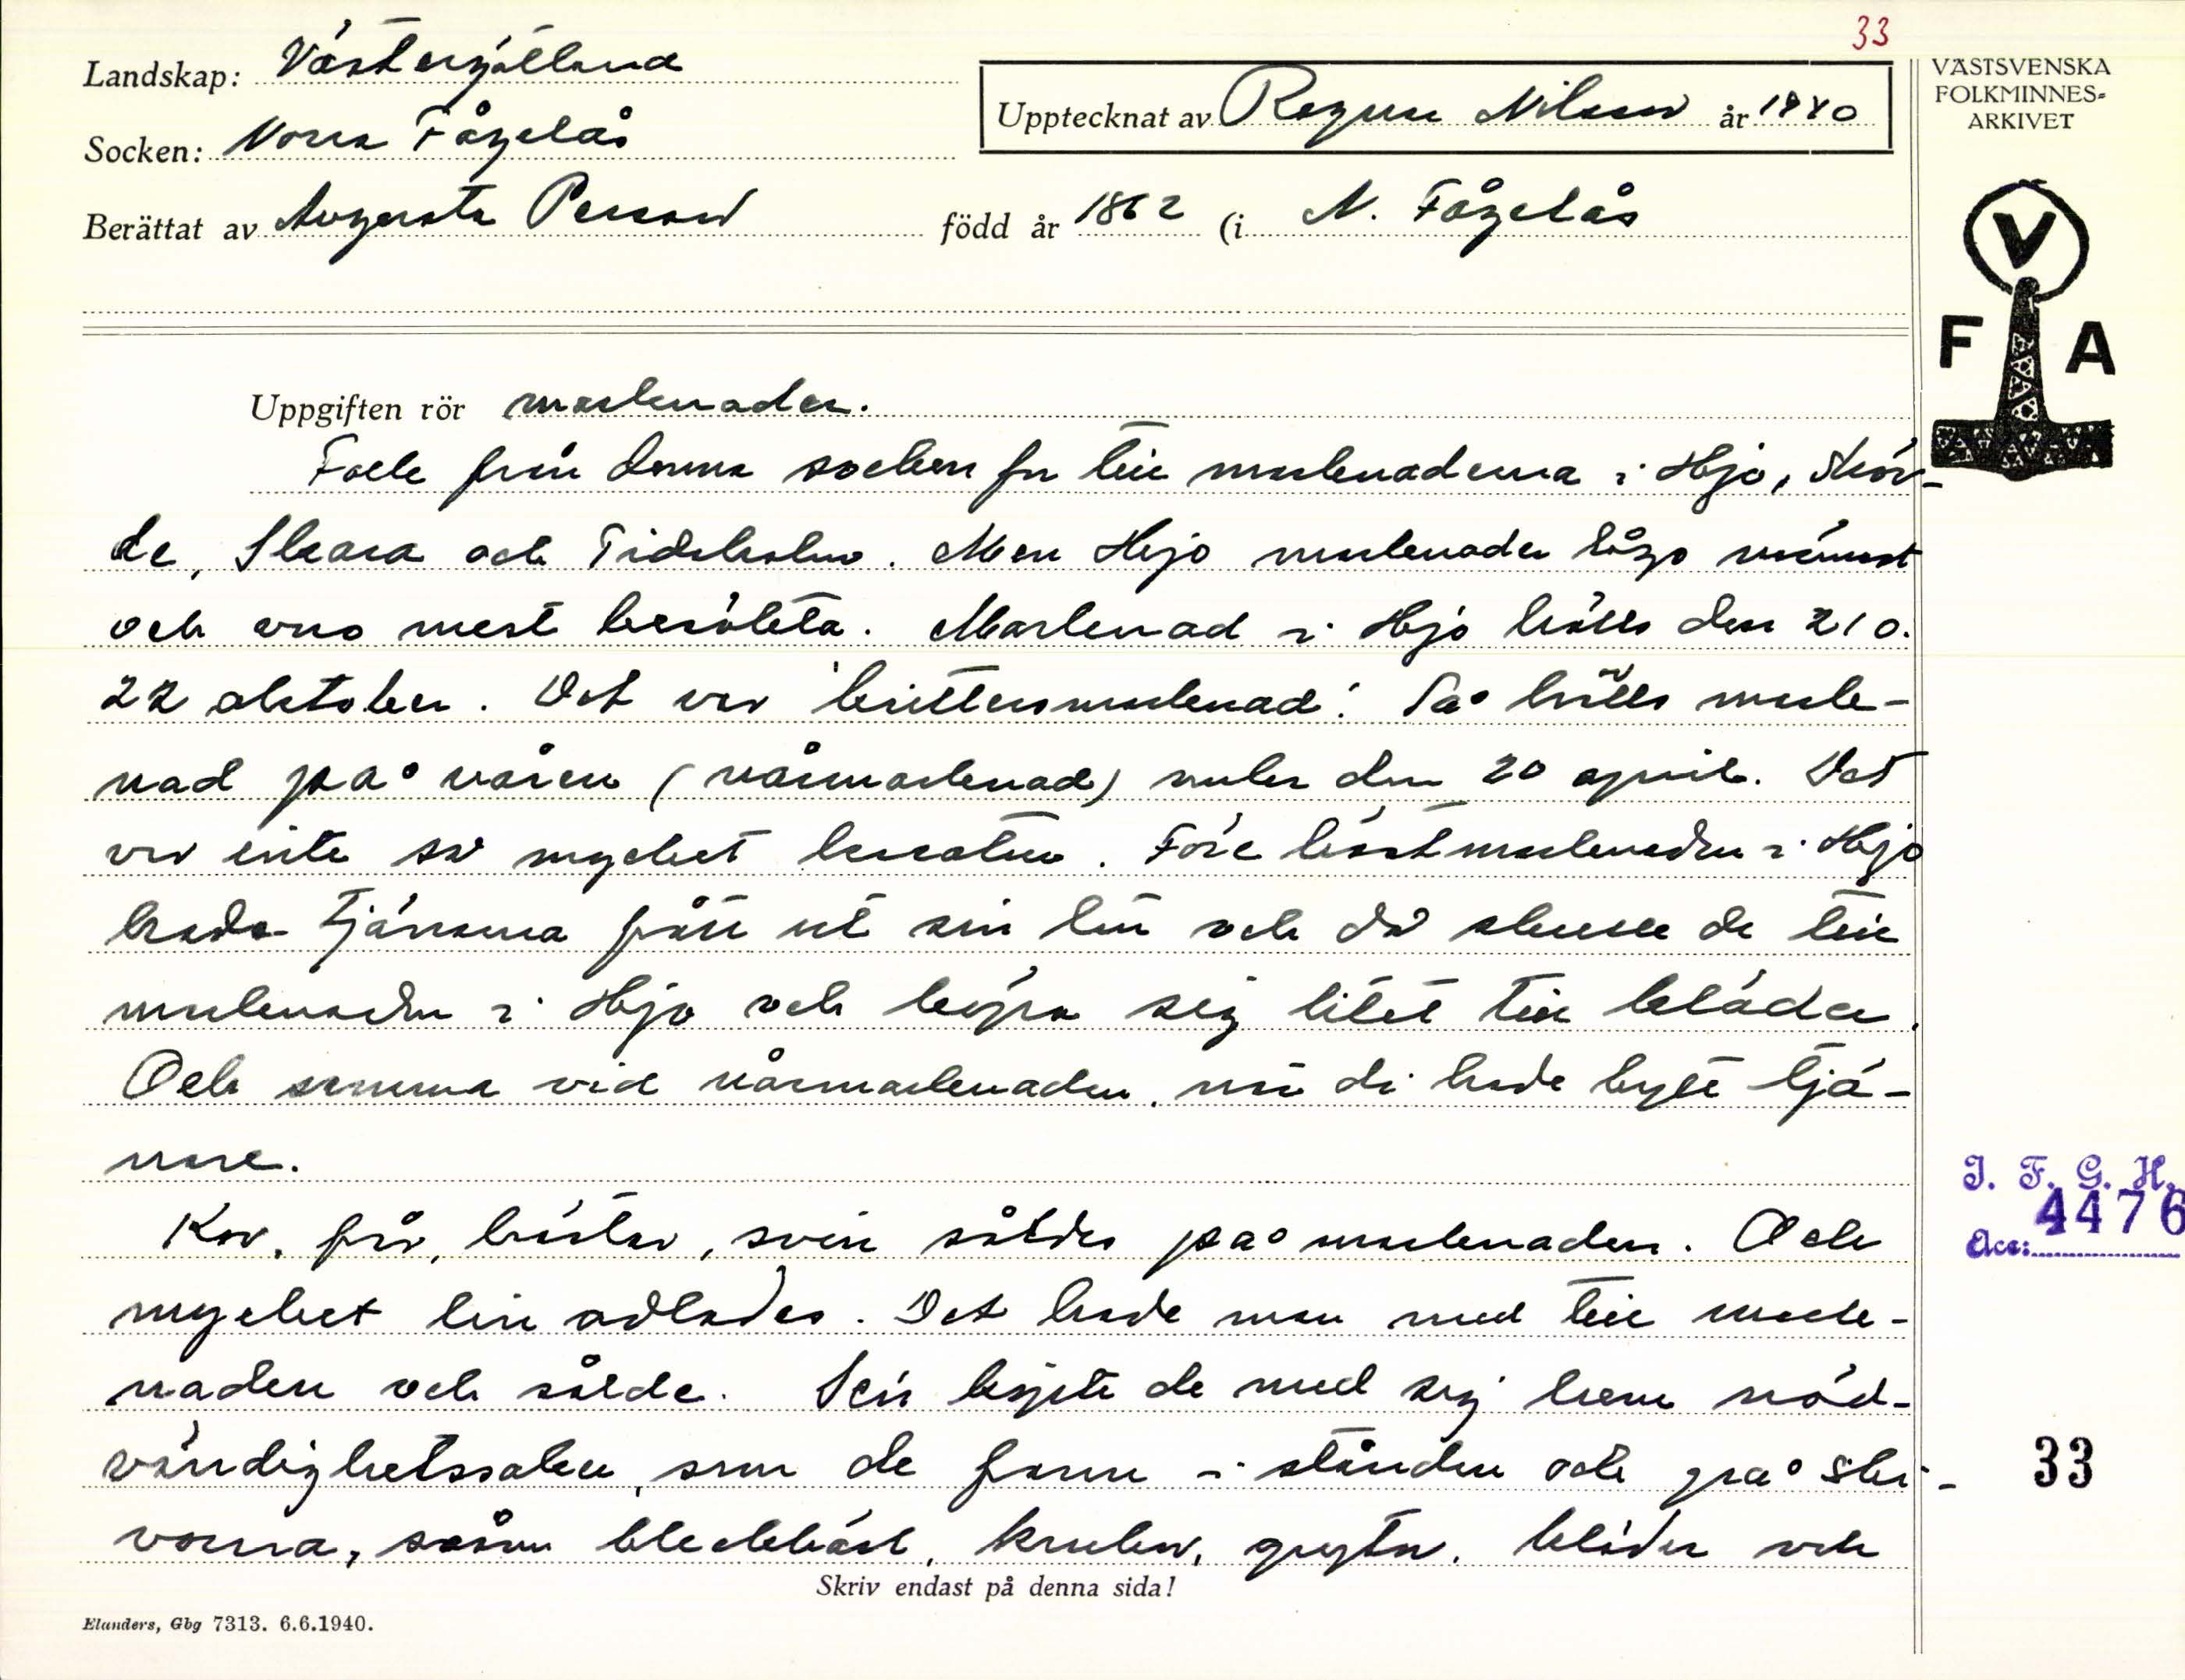 33
Landskap: Västergötland
Upptecknat av Ragnar Nilsson år 1940
VÄSTSVENSKA
FOLKMINNES=
ARKIVET
Socken: Norra Fågelås
Berättat av Augusta Persson född år 1862 (i N. Fågelås
V
F A
Uppgiften rör marknader.
Folk från denna socken for till marknaderna i Hjo, Sköv-
de, Skara och Tidaholm. Men Hjo marknader lågo närmast
och voro mest besökta. Marknad i Hjo hölls den 21 o.
22 oktober. Det var "brittersmarknad". Så hölls mark-
nad på våren (vårmarknad) under den 20 april. Det
var inte så mycket besatt. Före höstmarknaden i Hjo
hade tjänarna fått ut sin lön och då skulle de till
marknaden i Hjo och köpa sig litet till kläder.
Och samma vid vårmarknaden, när di hade bytt tjä-
nare.
Kor, får, hästar, svin såldes på marknaden. Och
mycket lin odlades. Det hade man med till mark-
naden och sålde. Sen köpte de med sig hem nöd-
vändighetssaker, som de fann i stånden och på ski-
vorna, såsom bleckkärl, krukor, grytor, kläder och
Skriv endast på denna sida!
Elanders, Gbg 7313. 6.6.1940.
I. F. G. H.
Acc: 4476
33